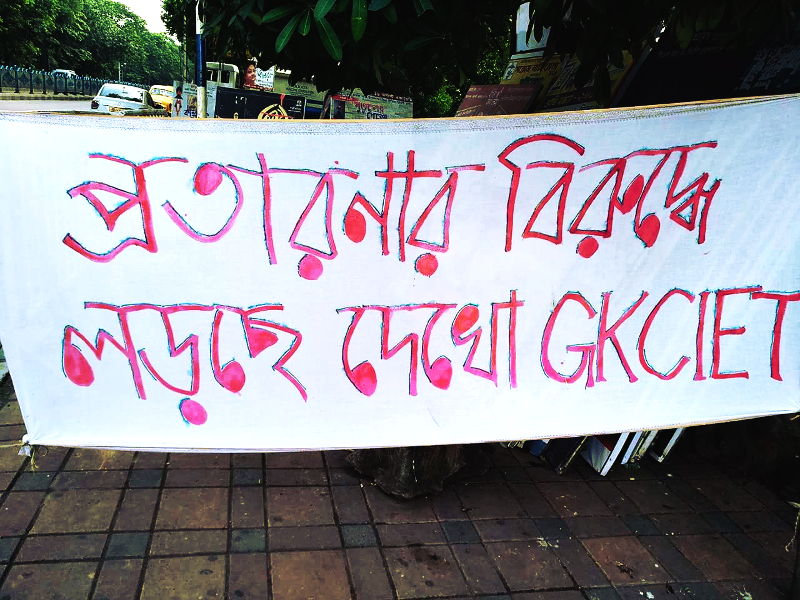 প্রতারনার বিরুদ্ধে
লড়ছে দেখো GKCIET